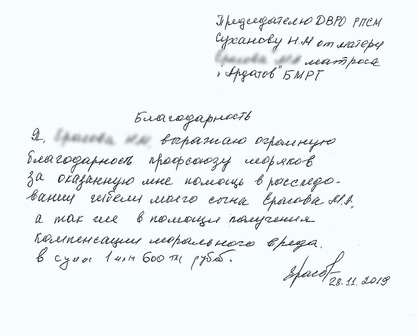 Председателю ДВРО РПСМ
Суханову Н М от матери
матроса
"Ардатов" БМРТ
Благодарность
Я, выражаю огромную
благодарность профсоюзу моряков
за оказанную мне помощь в расследо-
вании гибели моего сына Ерасова М.А.
а так же в помощи получения
компенсации морального вреда.
в сумм 1 млн 600 т рубл.
28.11.2019